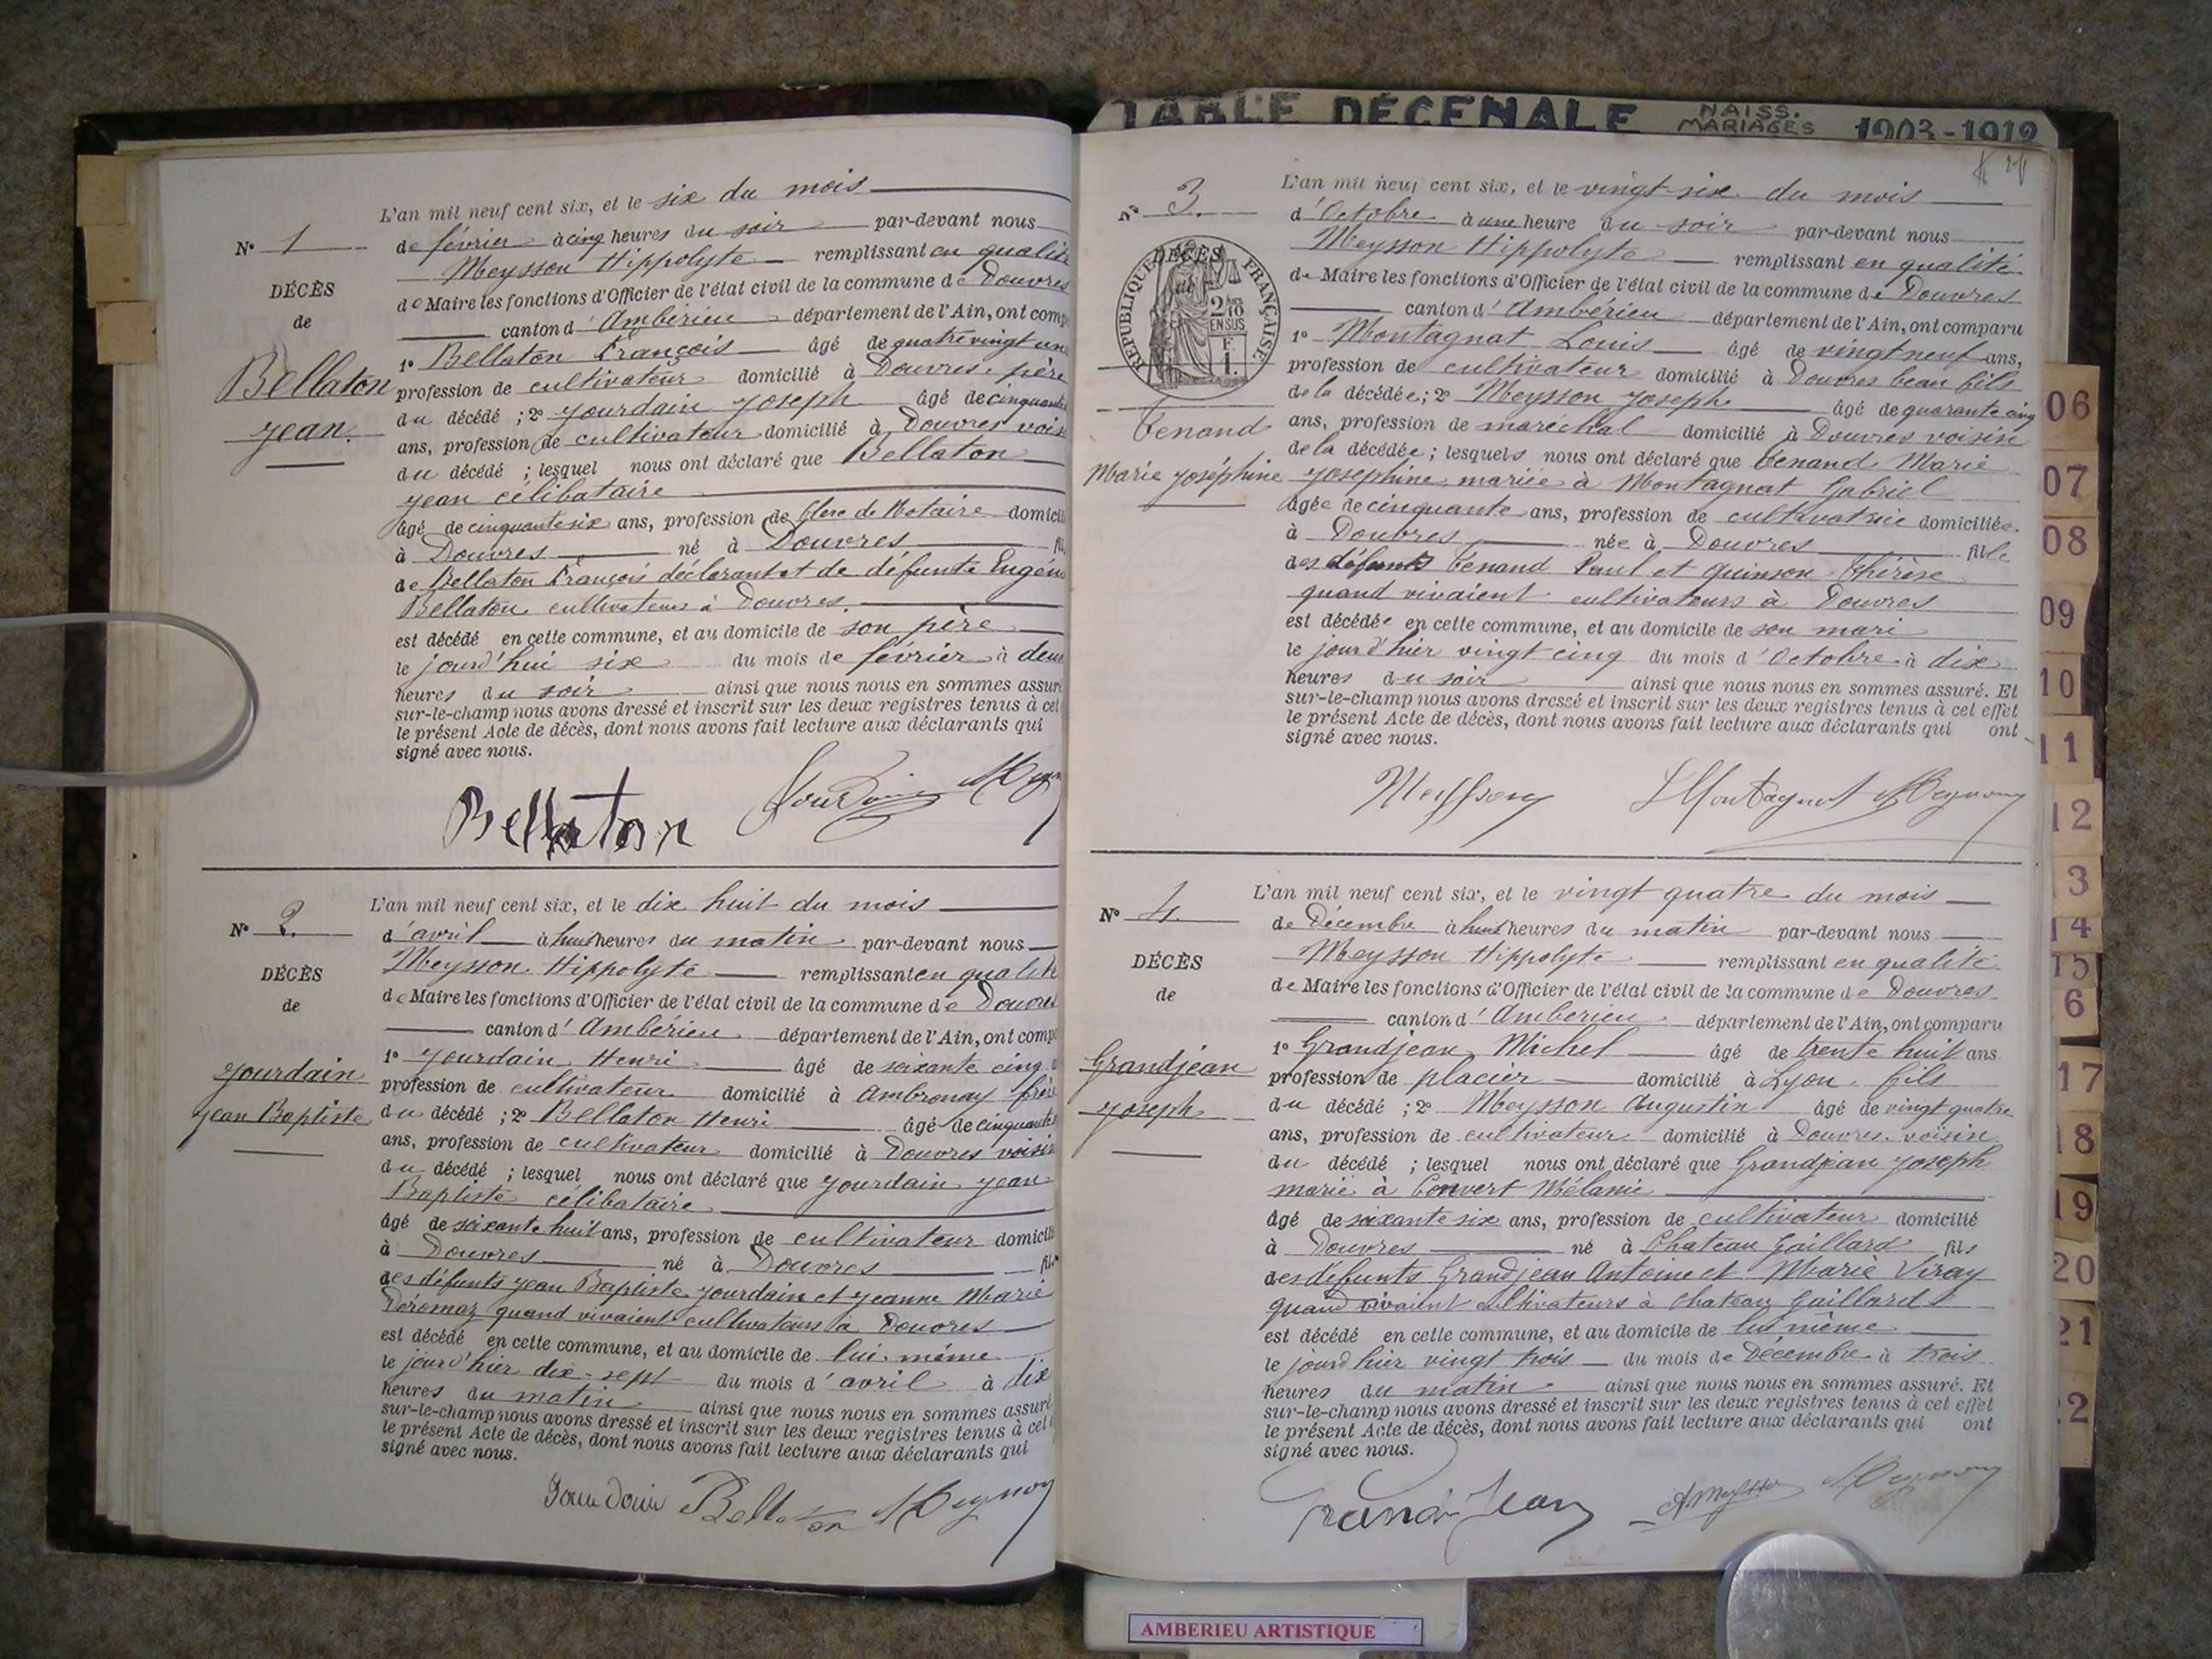 TABLE DÉCENALE NAISS. MARIAGES 1903-1912
L'an mil neuf cent six, et le six du mois
N° 1
de février à cinq heures du soir par-devant nous
Meysson Hippolyte remplissant en qualité
DÉCÈS
de Maire les fonctions d'Officier de l'état civil de la commune de Douvres
de
canton d'Ambérieu département de l'Ain, ont comp
1° Bellaton François âgé de quatre vingt un
Bellaton
profession de cultivateur domicilié à Douvres, père
du décédé ; 2° Jourdain Joseph âgé de cinquante
Jean.
ans, profession de cultivateur domicilié à Douvres vois
du décédé ; lesquel nous ont déclaré que Bellaton
Jean célibataire
âgé de cinquante six ans, profession de Clerc de Notaire domicil
à Douvres né à Douvres fil
de Bellaton François déclarant et de défunte Eugén
Bellaton cultivateurs à Douvres.
est décédé en cette commune, et au domicile de son père
le jourd'hui six du mois de février à deux
heures du soir ainsi que nous nous en sommes assuré
sur-le-champ nous avons dressé et inscrit sur les deux registres tenus à cet
le présent Acte de décès, dont nous avons fait lecture aux déclarants qui
signé avec nous.
Bellaton Jourdain
L'an mil neuf cent six, et le dix huit du mois
N° 2.
d'avril à huit heures du matin par-devant nous
Meysson Hippolyte remplissant en qualité
DÉCÈS
de Maire les fonctions d'Officier de l'état civil de la commune de Douvres
de
canton d'Ambérieu département de l'Ain, ont comp
1° Jourdain Henri âgé de soixante cinq
Jourdain
profession de cultivateur domicilié à Ambronay frère
Jean Baptiste
du décédé ; 2° Bellaton Henri âgé de cinquante
ans, profession de cultivateur domicilié à Douvres voisin
du décédé ; lesquel nous ont déclaré que Jourdain Jean
Baptiste célibataire
âgé de soixante huit ans, profession de cultivateur domicilié
à Douvres né à Douvres fils
des défunts Jean Baptiste Jourdain et Jeanne Marie
Déromaz quand vivaient cultivateurs à Douvres
est décédé en cette commune, et au domicile de lui-même
le jour d'hier dix-sept du mois d'avril à dix
heures du matin ainsi que nous nous en sommes assuré
sur-le-champ nous avons dressé et inscrit sur les deux registres tenus à cet
le présent Acte de décès, dont nous avons fait lecture aux déclarants qui
signé avec nous.
Jourdain Bellaton
L'an mil neuf cent six, et le vingt-six du mois
N° 3.
d'Octobre à une heure du soir par-devant nous
Meysson Hippolyte remplissant en qualité
RÉPUBLIQUE FRANÇAISE
DÉCÈS
2/10 EN SUS
F. 1.
de Maire les fonctions d'Officier de l'état civil de la commune de Douvres
canton d'Ambérieu département de l'Ain, ont comparu
1° Montagnat Louis âgé de vingt neuf ans,
profession de cultivateur domicilié à Douvres beau fils
de la décédée ; 2° Meysson Joseph âgé de quarante cinq
Tenand
ans, profession de maréchal domicilié à Douvres voisin
de la décédée ; lesquels nous ont déclaré que Tenand Marie
Marie Joséphine
Josephine mariée à Montagnat Gabriel
âgée de cinquante ans, profession de cultivatrice domiciliée
à Douvres née à Douvres fille
des défunts Tenand Paul et Quinson Thérèse
quand vivaient cultivateurs à Douvres
est décédée en cette commune, et au domicile de son mari
le jour d'hier vingt cinq du mois d'Octobre à dix
heures du soir ainsi que nous nous en sommes assuré. Et
sur-le-champ nous avons dressé et inscrit sur les deux registres tenus à cet effet
le présent Acte de décès, dont nous avons fait lecture aux déclarants qui ont
signé avec nous.
Meysson LMontagnat
L'an mil neuf cent six, et le vingt quatre du mois
N° 4.
de Décembre à huit heures du matin par-devant nous
Meysson Hippolyte remplissant en qualité
DÉCÈS
de Maire les fonctions d'Officier de l'état civil de la commune de Douvres
de
canton d'Ambérieu département de l'Ain, ont comparu
1° Grandjean Michel âgé de trente huit ans
Grandjean
profession de placier domicilié à Lyon, fils
Joseph
du décédé ; 2° Meysson Augustin âgé de vingt quatre
ans, profession de cultivateur domicilié à Douvres, voisin
du décédé ; lesquel nous ont déclaré que Grandjean Joseph
marié à Convert Mélanie
âgé de soixante six ans, profession de cultivateur domicilié
à Douvres né à Chateau Gaillard fils
des défunts Grandjean Antoine et Marie Viray
quand vivaient cultivateurs à Chateau Gaillard
est décédé en cette commune, et au domicile de lui même
le jour d'hier vingt trois du mois de Décembre à trois
heures du matin ainsi que nous nous en sommes assuré. Et
sur-le-champ nous avons dressé et inscrit sur les deux registres tenus à cet effet
le présent Acte de décès, dont nous avons fait lecture aux déclarants qui ont
signé avec nous.
Grandjean AMeysson
06
07
08
09
10
11
12
3
14
15
6
17
18
19
20
21
2
AMBERIEU ARTISTIQUE